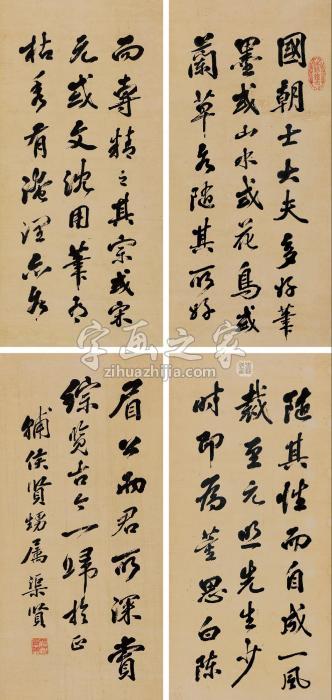 國朝士大夫多好筆
墨或山水或花鳥或
蘭草各隨其所好
而專精之其宗或宋
元或文沈用筆有
枯秀有濃潤亦各
随其性而自成一風
裁至元照先生少
時即為董思白陳
眉公兩君所深賞
綜览古今一歸於正
補侯賢甥属 渠賢
字画之家
zihuazhijia.com